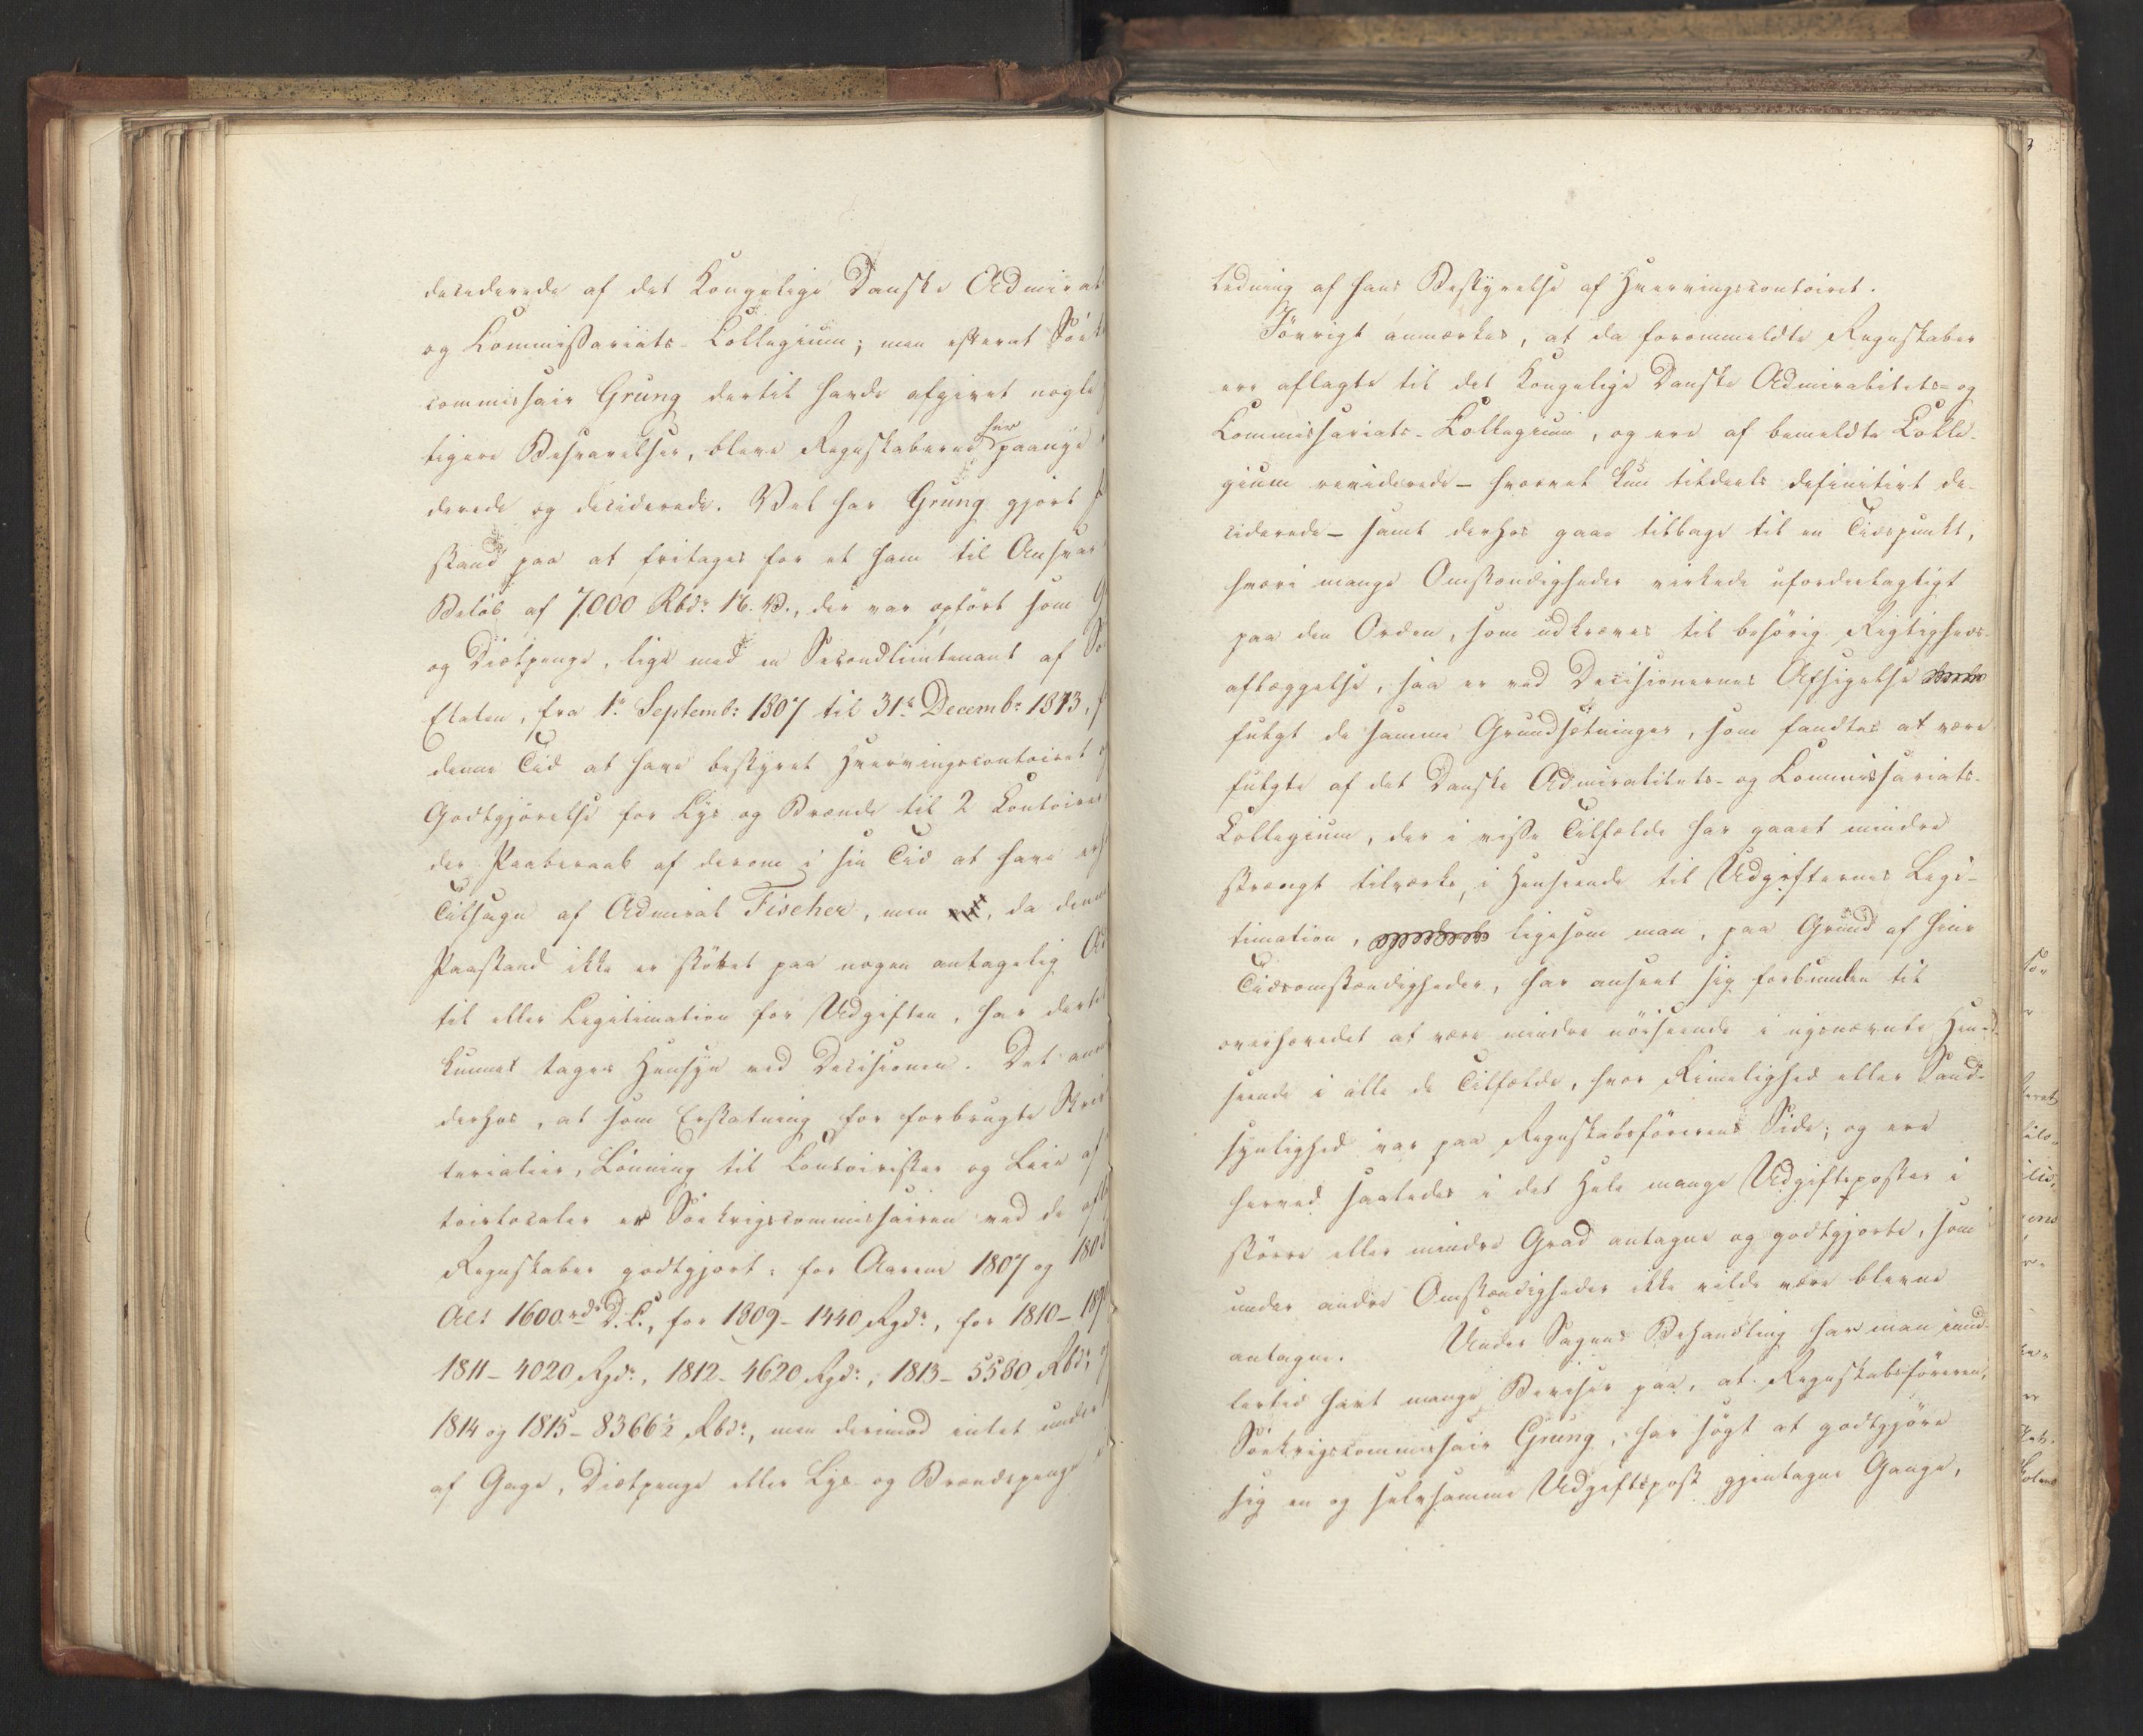 deciderede af det Kongelige Danske Admirat
og Kommissariats-Collegium; men efterat Söek
commissair Grung dertil havde afgivet nogle
tigere Besvarelser, bleve Regnskaberne her paanye
derede og deciderede. Vel har Grung gjort
stand paa at fritages for et ham til Ansvar
Beløb af 7000 Rbdr. N. V., der var opført som G
og Diætpenge, lige med en Secondlieutenant af Sö
Etaten, fra 1te Septembr: 1807 til 31te Decembr: 1813, f
denne Tid at have bestyret Hvervingscontoiret
Godtgjørelse for Lys og Brænde til 2 Contoirer
der Paaberaab af derom i sin Tid at have erh
Tilsagn af Admiral Fischer, men, da denne
Paastand ikke er støttet paa nogen antagelig Ad
til eller Legitimation for Udgiften, har derti
kunnet tages Hensyn ved Decisionen. Det anm
derhos, at som Erstatning for forbrugte Skriv
terialier, Lönning til Contoirister og Leie af
toirlocaler er Söekrigscommissairen ved de afl
Regnskaber godtgjort: for Aarene 1807 og 1808
Alt 1600 rdr D. C., for 1809 - 1440 Rgdr., for 1810 - 18
1811 - 4020 Rgdr., 1812 - 4620 Rgdr., 1813 - 5580 Rbdr.
1814 og 1815 - 8366½ Rbdr., men derimod intet under
af Gage, Diætpenge eller Lys- og Brændepenge
Ledning af hans Bestyrelse af Hvervingscontoiret.
Jövrigt anmærkes, at da forommeldte Regnskaber
ere aflagte til det Kongelige Danske Admiralitets- og
Kommissariats-Collegium, og ere af bemeldte Colle-
gium reviderede - hvoraf kun tildeels definitivt de-
ciderede - samt derhos gaae tilbage til en Tidspunkt,
hvori mange Omstændigheder virkede ufordeelagtigt
paa den Orden, som udkræves til behörig Rigtigheds-
aflæggelse, saa er ved Decisionernes Afsigelse
fulgt de samme Grundsætninger, som fandtes at være
fulgte af det Danske Admiralitets- og Commissariats-
Collegium, der i visse Tilfælde har gaaet mindre
strængt tilværks, i Henseende til Udgifternes Legi-
timation, ligesom man, paa Grund af hine
Tidsomstændigheder, har anseet sig forbunden til
overhovedet at være mindre nöiseende i nysnævnte Hen-
seende i alle de Tilfælde, hvor Rimelighed eller Sand-
synlighed var paa Regnskabsförerens Side; og ere
herved saaledes i det Hele mange Udgiftsposter i
större eller mindre Grad antagne og godtgjorte, som
under andre Omstændigheder ikke vilde være blevne
antagne. Under Sagens Behandling har man imid-
lertid havt mange Beviser paa, at Regnskabsföreren,
Söekrigscommissair Grung, har sögt at godtgjöre
sig en og selvsamme Udgiftspost gjentagne Gange,